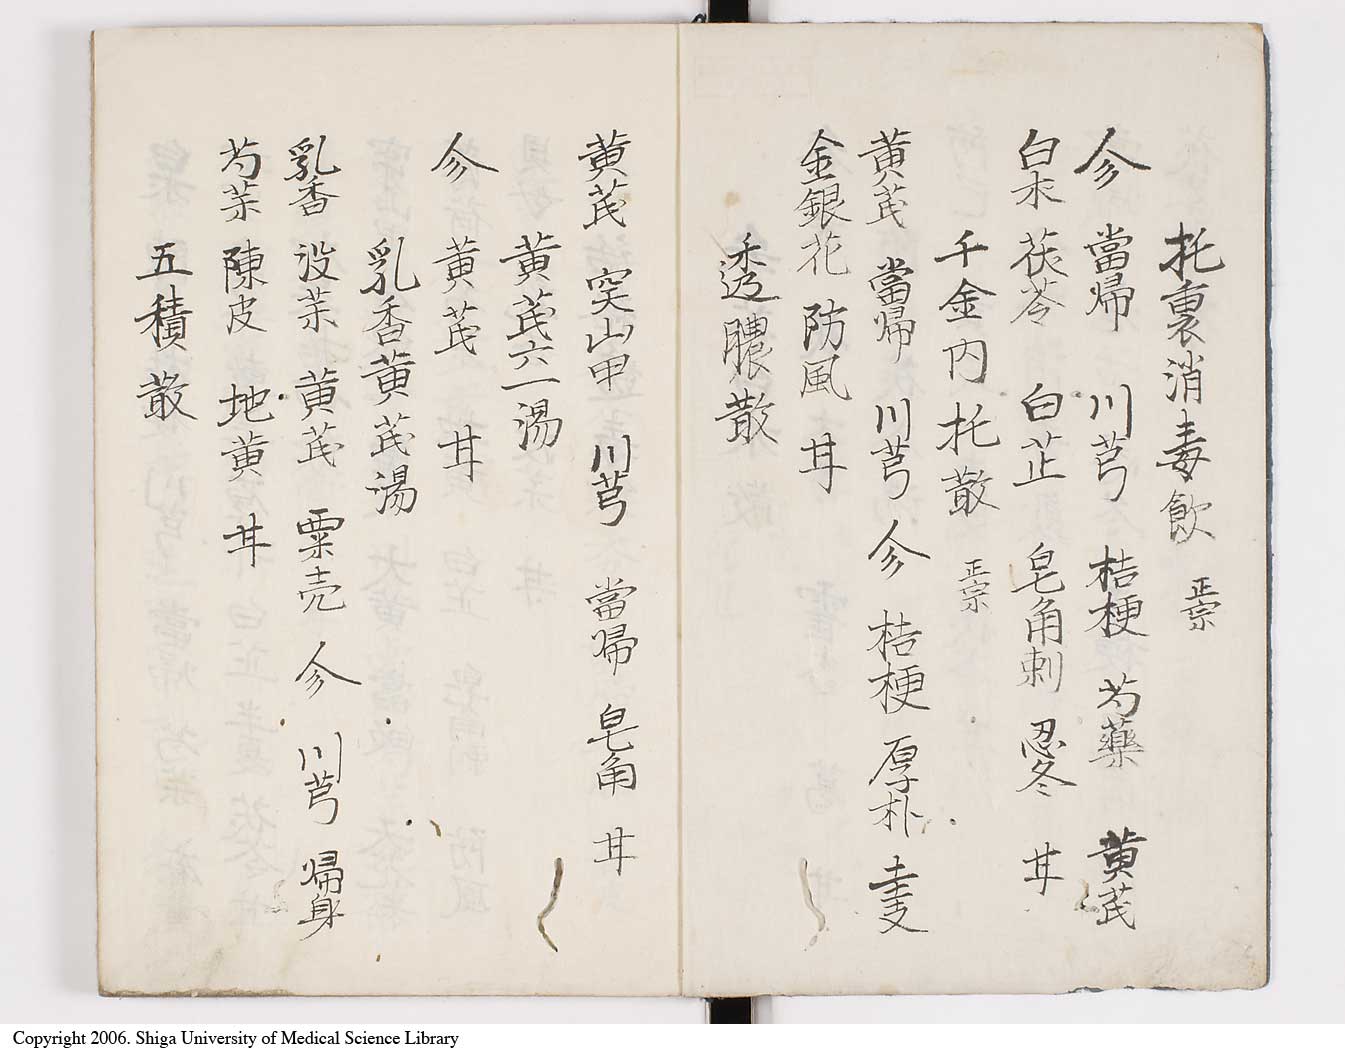 托裏消毒飲 正宗
参 當帰 川芎 桔梗 芍藥 黄芪
白朮 茯苓 白芷 皂角刺 忍冬 甘
千金内托散 正宗
黄芪 當帰 川芎 参 桔梗 厚朴
金銀花 防風 甘
透膿散
黄芪 穿山甲 川芎 當帰 皂角 甘
黄芪六一湯
参 黄芪 甘
乳香黄芪湯
乳香 没薬 黄芪 粟壳 参 川芎 帰身
芍薬 陳皮 地黄 甘
五積散
Copyright 2006. Shiga University of Medical Science Library